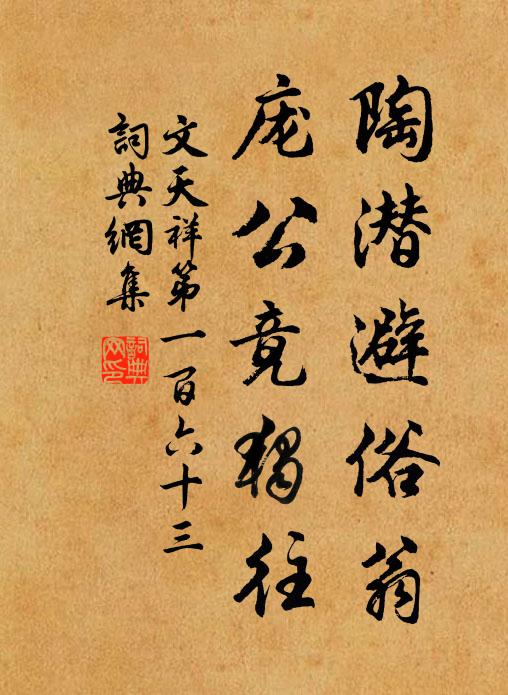 陶潜避俗翁
庞公竟独往
文天祥第一百六十三
詞典網集
詞典网印